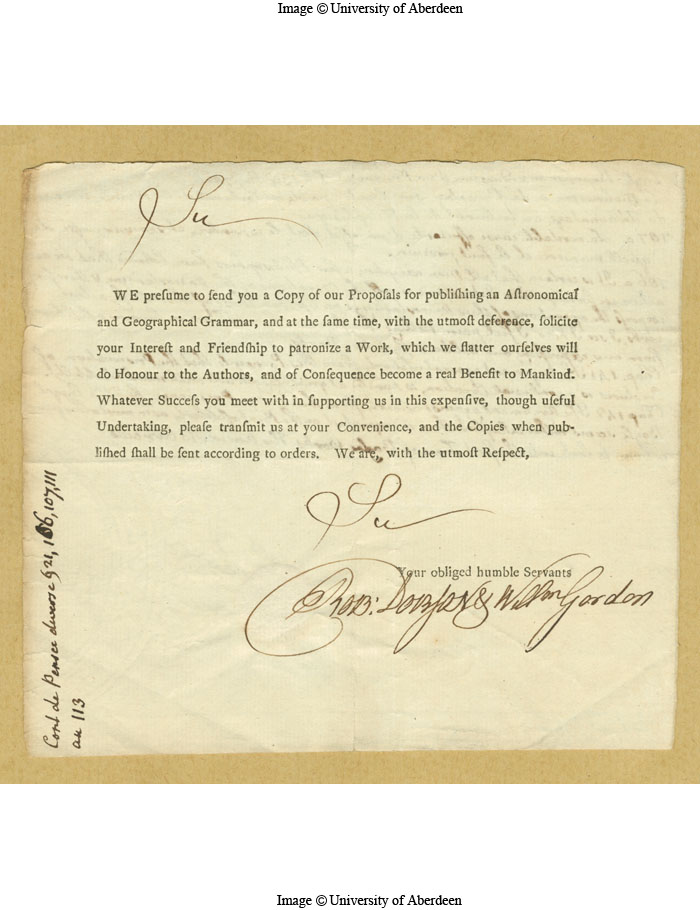 Image © University of Aberdeen
Sir
WE preſume to ſend you a Copy of our Propoſals for publiſhing an Aſtronomical
and Geographical Grammar, and at the ſame time, with the utmoſt deference, ſolicite
your Intereſt and Friendſhip to patronize a Work, which we flatter ourſelves will
do Honour to the Authors, and of Conſequence become a real Benefit to Mankind.
Whatever Succeſs you meet with in ſupporting us in this expenſive, though uſeful
Undertaking, pleaſe tranſmit us at your Convenience, and the Copies when pub-
liſhed ſhall be ſent according to orders. We are, with the utmoſt Reſpect,
Sir
Your obliged humble Servants
Rob: & Willm Gordon
Cont de Pensee diverse § 21, 106, 107, 111
au 113
Image © University of Aberdeen